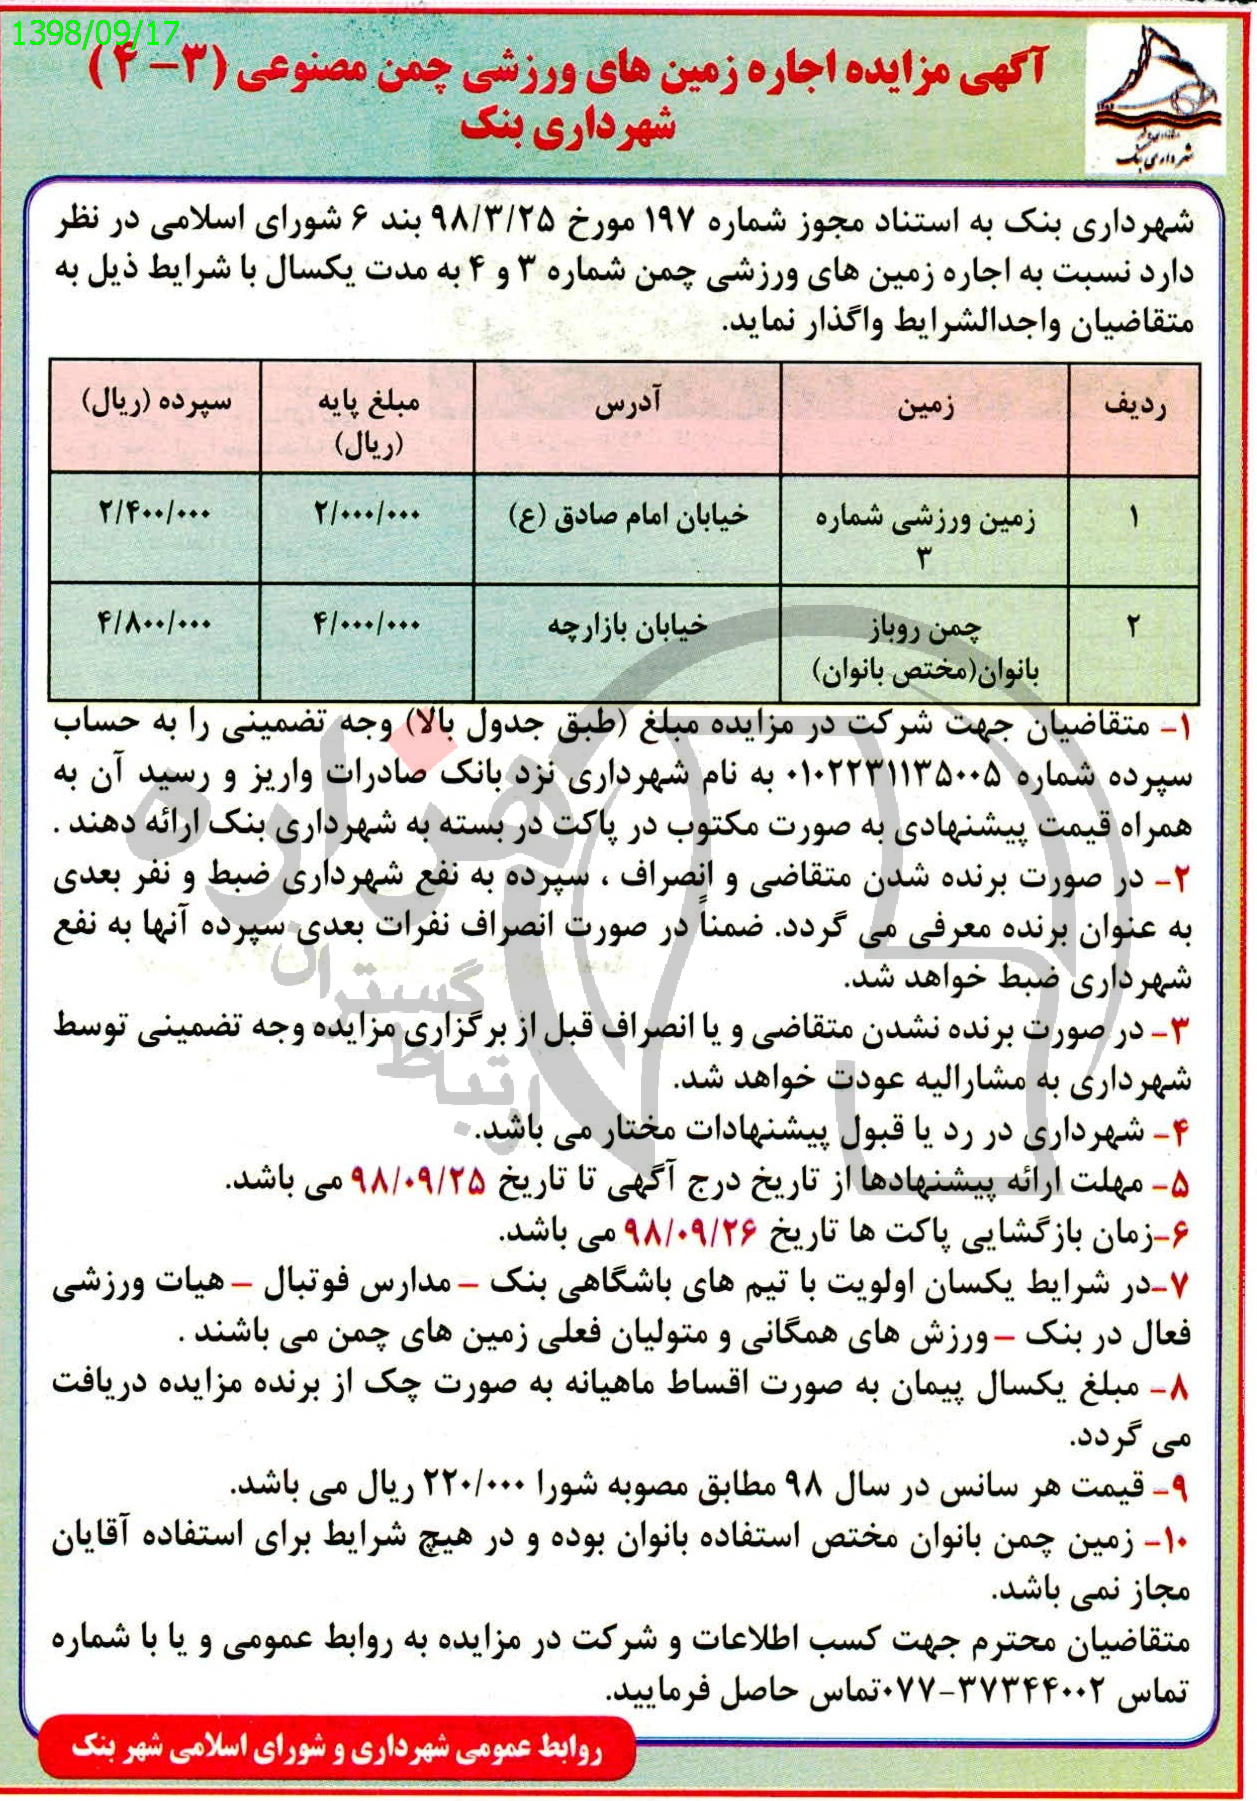 1398/09/17
آگهی مزایده اجاره زمین های ورزشی چمن مصنوعی (۳- ۴)
شهرداری بنک
شهرداری بنک
شهرداری بنک به استناد مجوز شماره ۱۹۷ مورخ ۹۸/۳/۲۵ بند ۶ شورای اسلامی در نظر
دارد نسبت به اجاره زمین های ورزشی چمن شماره ۳ و ۴ به مدت یکسال با شرایط ذیل به
متقاضیان واجدالشرایط واگذار نماید.
ردیف زمین آدرس مبلغ پایه (ریال) سپرده (ریال)
۱ زمین ورزشی شماره ۳ خیابان امام صادق (ع) ۲/۰۰۰/۰۰۰ ۲/۴۰۰/۰۰۰
۲ چمن روباز بانوان(مختص بانوان) خیابان بازارچه ۴/۰۰۰/۰۰۰ ۴/۸۰۰/۰۰۰
۱- متقاضیان جهت شرکت در مزایده مبلغ (طبق جدول بالا) وجه تضمینی را به حساب
سپرده شماره ۰۱۰۲۲۳۱۱۳۵۰۰۵ به نام شهرداری نزد بانک صادرات واریز و رسید آن به
همراه قیمت پیشنهادی به صورت مکتوب در پاکت در بسته به شهرداری بنک ارائه دهند .
۲- در صورت برنده شدن متقاضی و انصراف ، سپرده به نفع شهرداری ضبط و نفر بعدی
به عنوان برنده معرفی می گردد. ضمناً در صورت انصراف نفرات بعدی سپرده آنها به نفع
شهرداری ضبط خواهد شد.
۳- در صورت برنده نشدن متقاضی و یا انصراف قبل از برگزاری مزایده وجه تضمینی توسط
شهرداری به مشارالیه عودت خواهد شد.
۴- شهرداری در رد یا قبول پیشنهادات مختار می باشد.
۵- مهلت ارائه پیشنهادها از تاریخ درج آگهی تا تاریخ ۹۸/۰۹/۲۵ می باشد.
۶-زمان بازگشایی پاکت ها تاریخ ۹۸/۰۹/۲۶ می باشد.
۷-در شرایط یکسان اولویت با تیم های باشگاهی بنک – مدارس فوتبال – هیات ورزشی
فعال در بنک – ورزش های همگانی و متولیان فعلی زمین های چمن می باشند .
۸- مبلغ یکسال پیمان به صورت اقساط ماهیانه به صورت چک از برنده مزایده دریافت
می گردد.
۹- قیمت هر سانس در سال ۹۸ مطابق مصوبه شورا ۲۲۰/۰۰۰ ریال می باشد.
۱۰- زمین چمن بانوان مختص استفاده بانوان بوده و در هیچ شرایط برای استفاده آقایان
مجاز نمی باشد.
متقاضیان محترم جهت کسب اطلاعات و شرکت در مزایده به روابط عمومی و یا با شماره
تماس ۳۷۳۴۴۰۰۲-۰۷۷تماس حاصل فرمایید.
روابط عمومی شهرداری و شورای اسلامی شهر بنک
هزاره
گستران
ارتباط